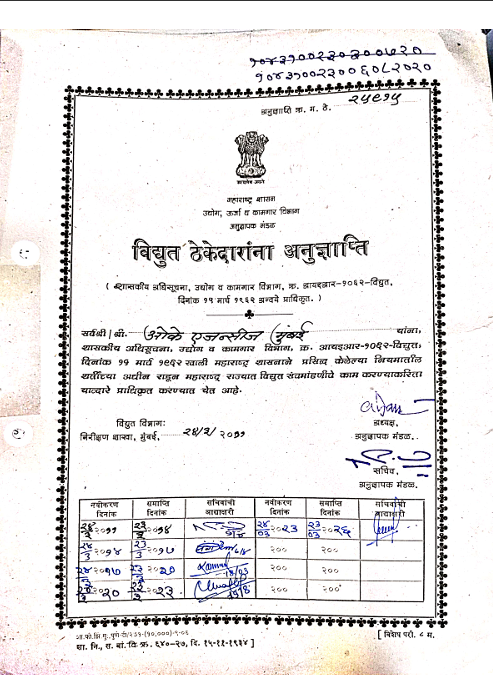 १०४३१००२३०३००७२०
१०४३१००२२००६०८२०२०
अनुज्ञाप्ति क्र. म. ठे. २५९१५
सत्यमेव जयते
महाराष्ट्र शासन
उद्योग, ऊर्जा व कामगार विभाग
अनुज्ञापक मंडळ
विद्युत ठेकेदारांना अनुज्ञाप्ति
( शासकीय अधिसूचना, उद्योग व कामगार विभाग, क्र. आयइआर-१०६२-विद्युत,
दिनांक ११ मार्च १९६२ अन्वये प्राधिकृत. )
सर्वश्री/श्री. ओके एजन्सीज (मुंबई यांना,
शासकीय अधिसूचना, उद्योग व कामगार विभाग, क्र. आयइआर-१०६२-विद्युत,
दिनांक ११ मार्च १९६२ खाली महाराष्ट्र शासनाने प्रसिद्ध केलेल्या नियमातील
शर्तीच्या अधीन राहून महाराष्ट्र राज्यात विद्युत संचमांडणीचे काम करण्याकरिता
याव्दारे प्राधिकृत करण्यात येत आहे.
विद्युत विभाग:
निरीक्षण शाखा, मुंबई, २४/३/२०११
अध्यक्ष,
अनुज्ञापक मंडळ.
सचिव,
अनुज्ञापक मंडळ.
नवीकरण दिनांक समाप्ति दिनांक सचिवांची आद्याक्षरी नवीकरण दिनांक समाप्ति दिनांक सचिवांची आद्याक्षरी
२४/३/२०११ २३/३/२०१४ २४/०३/२०२३ २३/०३/२०२६
२४/३/२०१४ २३/३/२०१७ २०० २००
२४/३/२०१७ २३/३/२०२० २०० २००
२४/३/२०२० २३/३/२०२३ २०० २००
[ विशेष परी. ८ म.
शा. नि., स. बां. वि. क्र. ६४०-२७, दि. १५-११-१९३४ ]